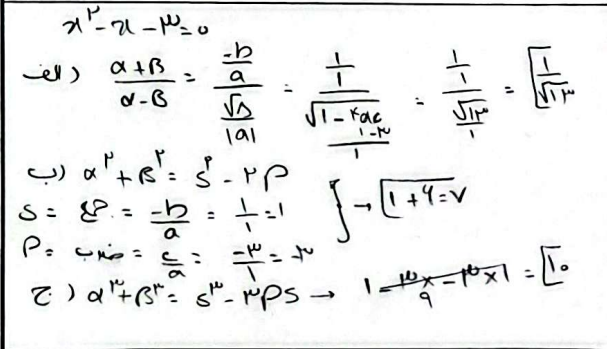 x^۲ - x - ۳ = ۰
الف) (α+β)/(α-β) = (-b/a)/(√Δ/|a|) = (1/1)/(√(1-۴ac)/1) = (1/1)/(√1۳/1) = 1/√1۳
1-۳
ب) α^۲ + β^۲ = S^۲ - ۲P
S = جمع = -b/a = 1/1 = 1 } → 1+۶=۷
P = ضرب = c/a = -۳/1 = -۳
ج) α^۳ + β^۳ = S^۳ - ۳PS → 1 - ۳×-۳×1 = 1۰
۹